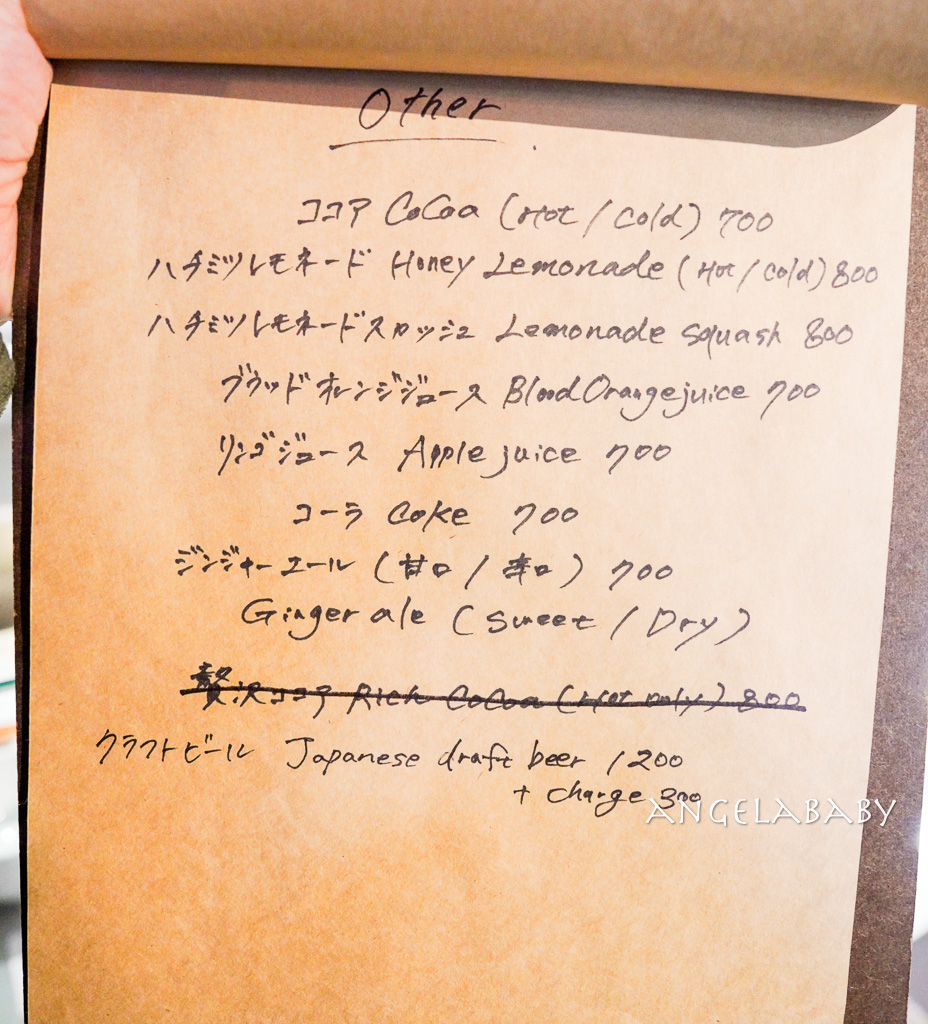 Other
ココア CoCoa (Hot / Cold) 700
ハチミツレモネード Honey Lemonade (Hot / Cold) 800
ハチミツレモネードスカッシュ Lemonade squash 800
ブラッドオレンジジュース Blood Orange juice 700
リンゴジュース Apple juice 700
コーラ Coke 700
ジンジャーエール (甘口 / 辛口) 700
Ginger ale (Sweet / Dry)
贅沢ココア Rich CoCoa (Hot only) 800
クラフトビール Japanese draft beer 1200
+ charge 300
ANGELABABY